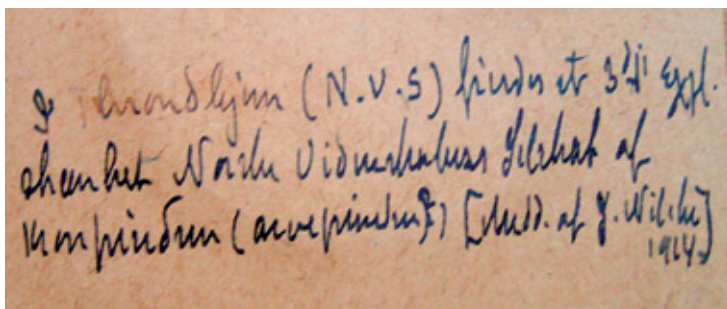 I Throndhjem (N.V.S) findes et 3die Expl.
skænket Norske Videnskabers Selskab af
Kronprindsen (arveprindsen?) [Medd. af J. Wilcke
1914.]